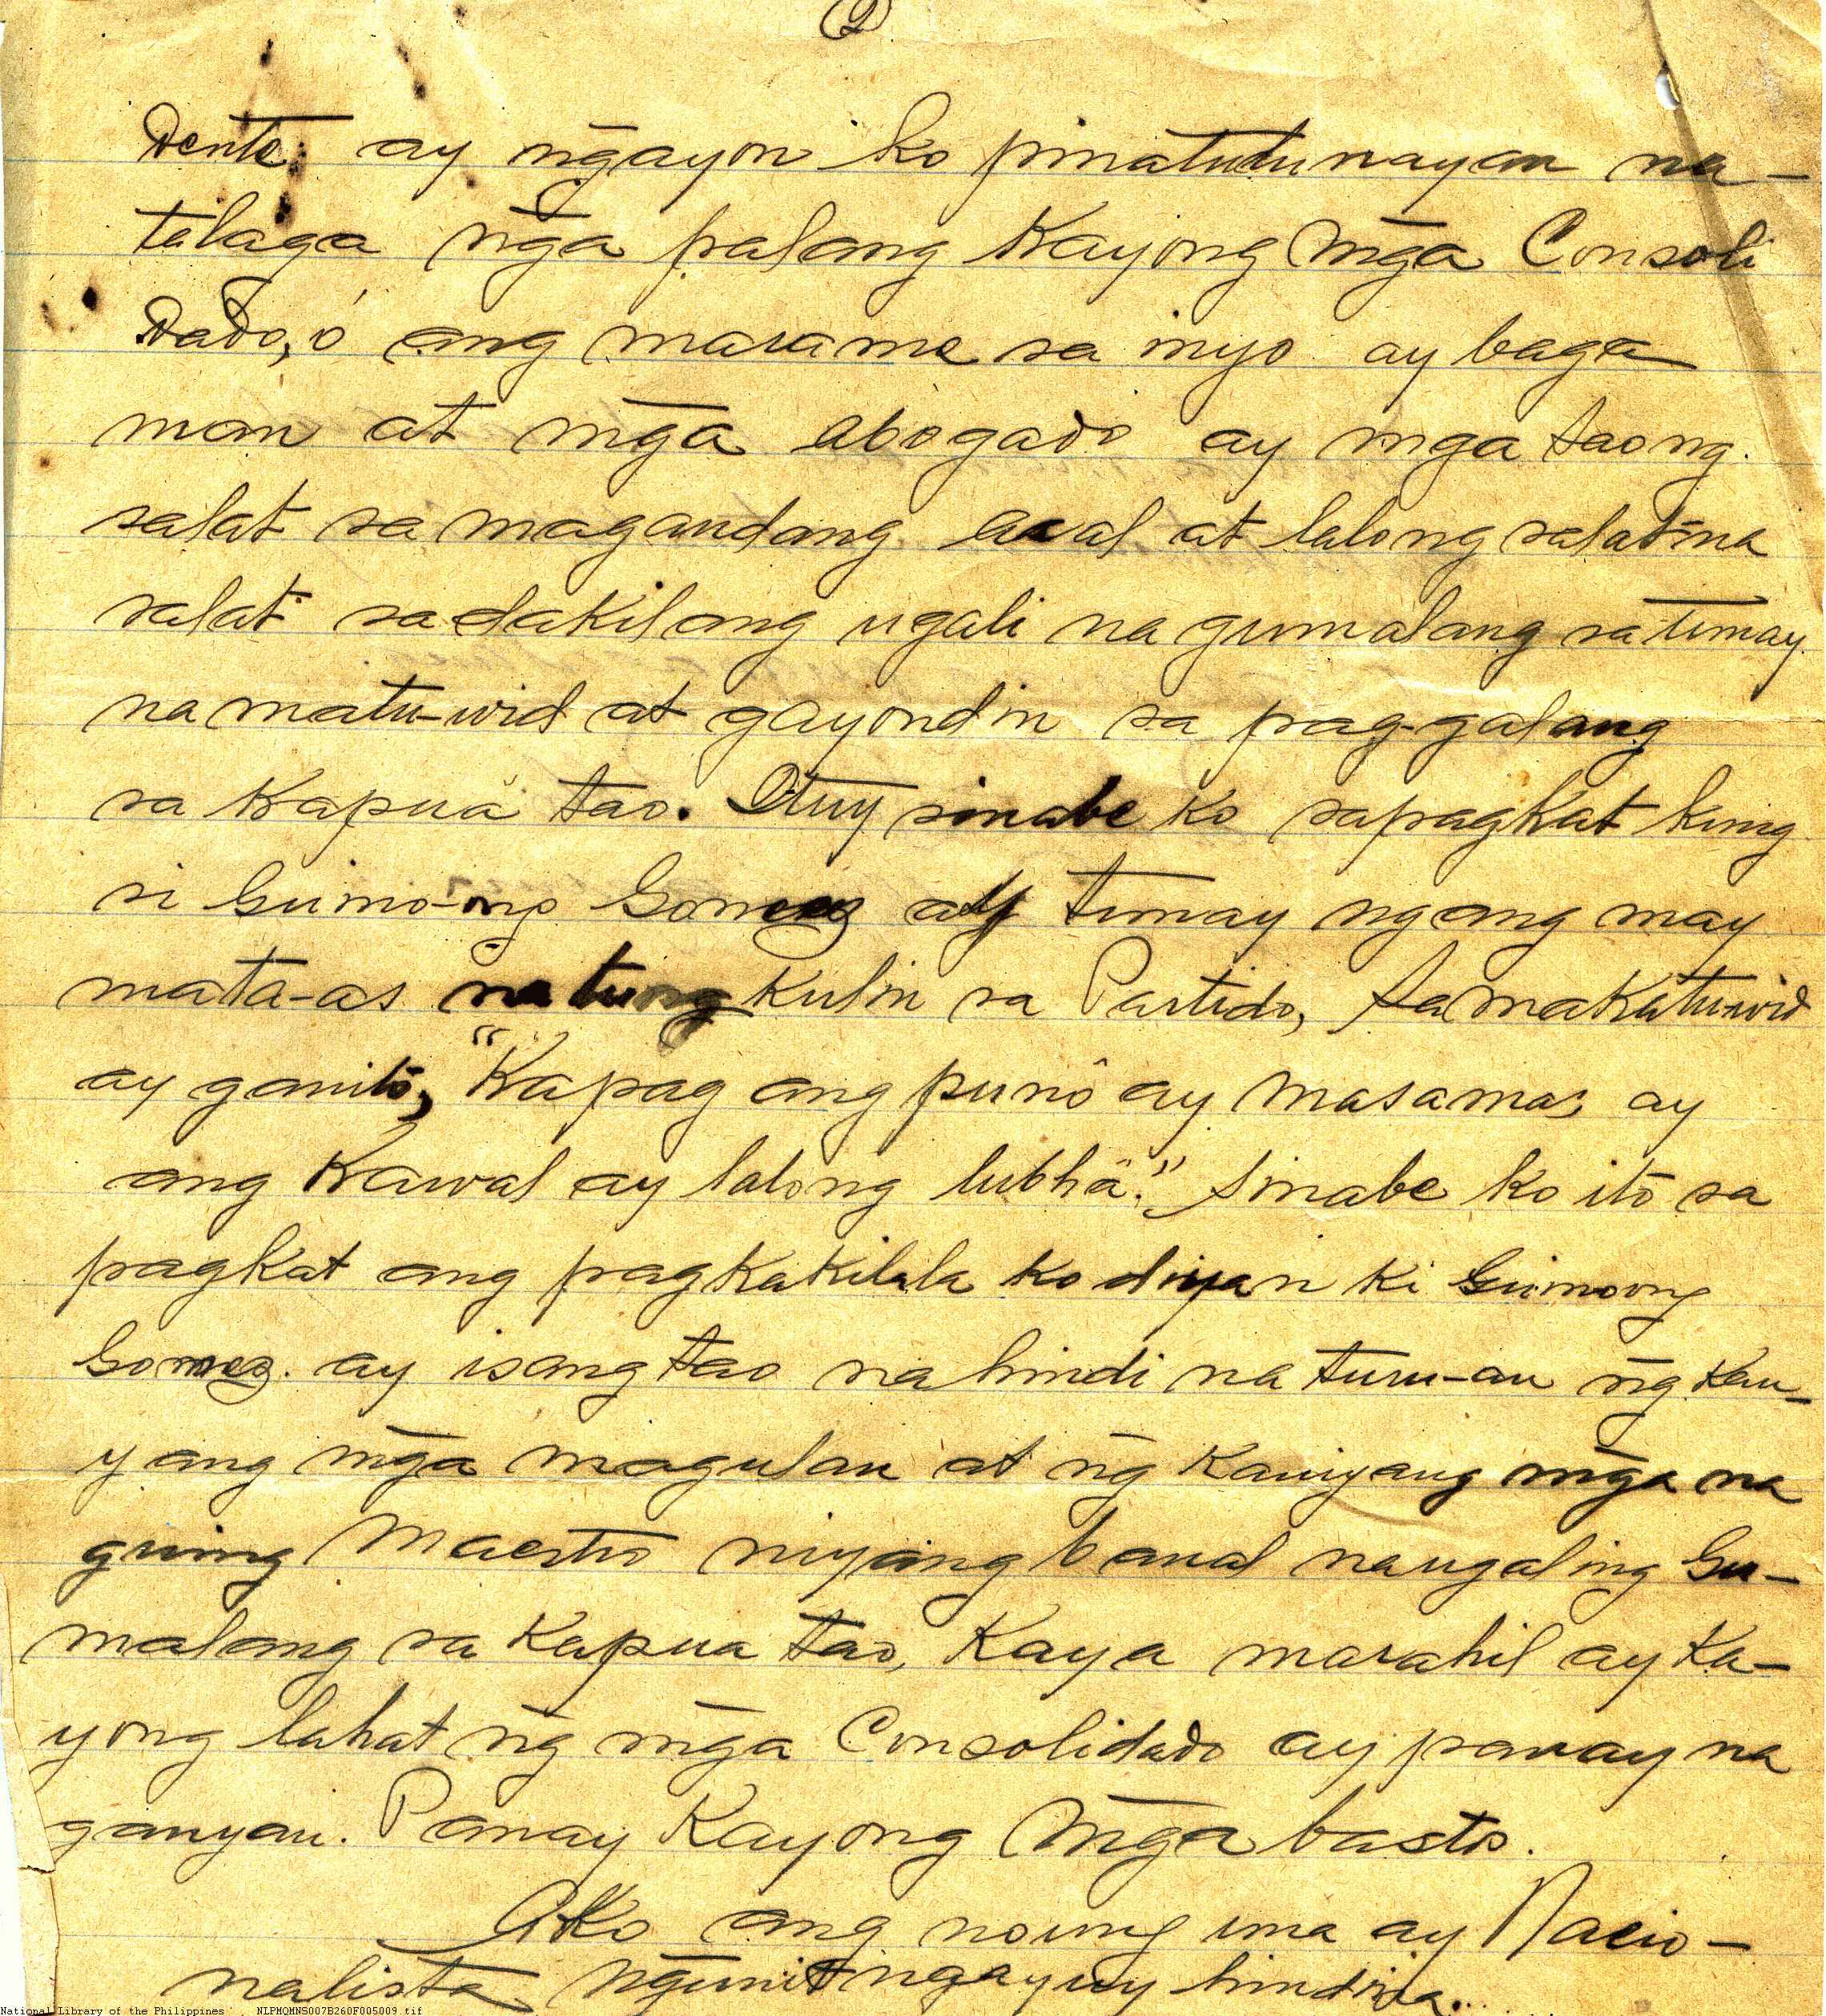 2
Dente; ay n̄gayon ko pinatutunayan na-
talaga n̄ga palang Kayong m̄ga Consoli
Dado, ó ang marame sa inyo ay baga
man at m̄ga abogado ay mga taong
salat sa magandang asal at lalong salat na
salat sa dakilang ugali na gumalang sa tunay
na matu-wid at gayondin sa pag-galang
sa Kapuâ tao. Ituy sinabe ko sapagkat kung
si Guimo-ong Gomez ay tunay ngang may
mata-as na tungkulin sa Partido, sa makatuwid
ay ganitó, "Kapag ang punô ay masama, ay
ang Kawal ay lalong lubhâ." Sinabe ko itó sa
pagkat ang pagkakilala ko diyan ki Guimoong
Gomez. ay isang tao na hindi na turu-an n̄g Kan-
yang m̄ga magulan at n̄g Kaniyang m̄ga na
guing Maestro niyang banal na ugaling Gu-
malang sa Kapua tao, Kaya marahil ay Ka-
yong lahat n̄g m̄ga Consolidado ay panay na
ganyan. Panay Kayong m̄ga bastos.
Ako ang noung una ay Nacio-
nalista, N̄gunit ngayuy hindi na.
National Library of the Philippines NLPMQMNS007B260F005009.tif